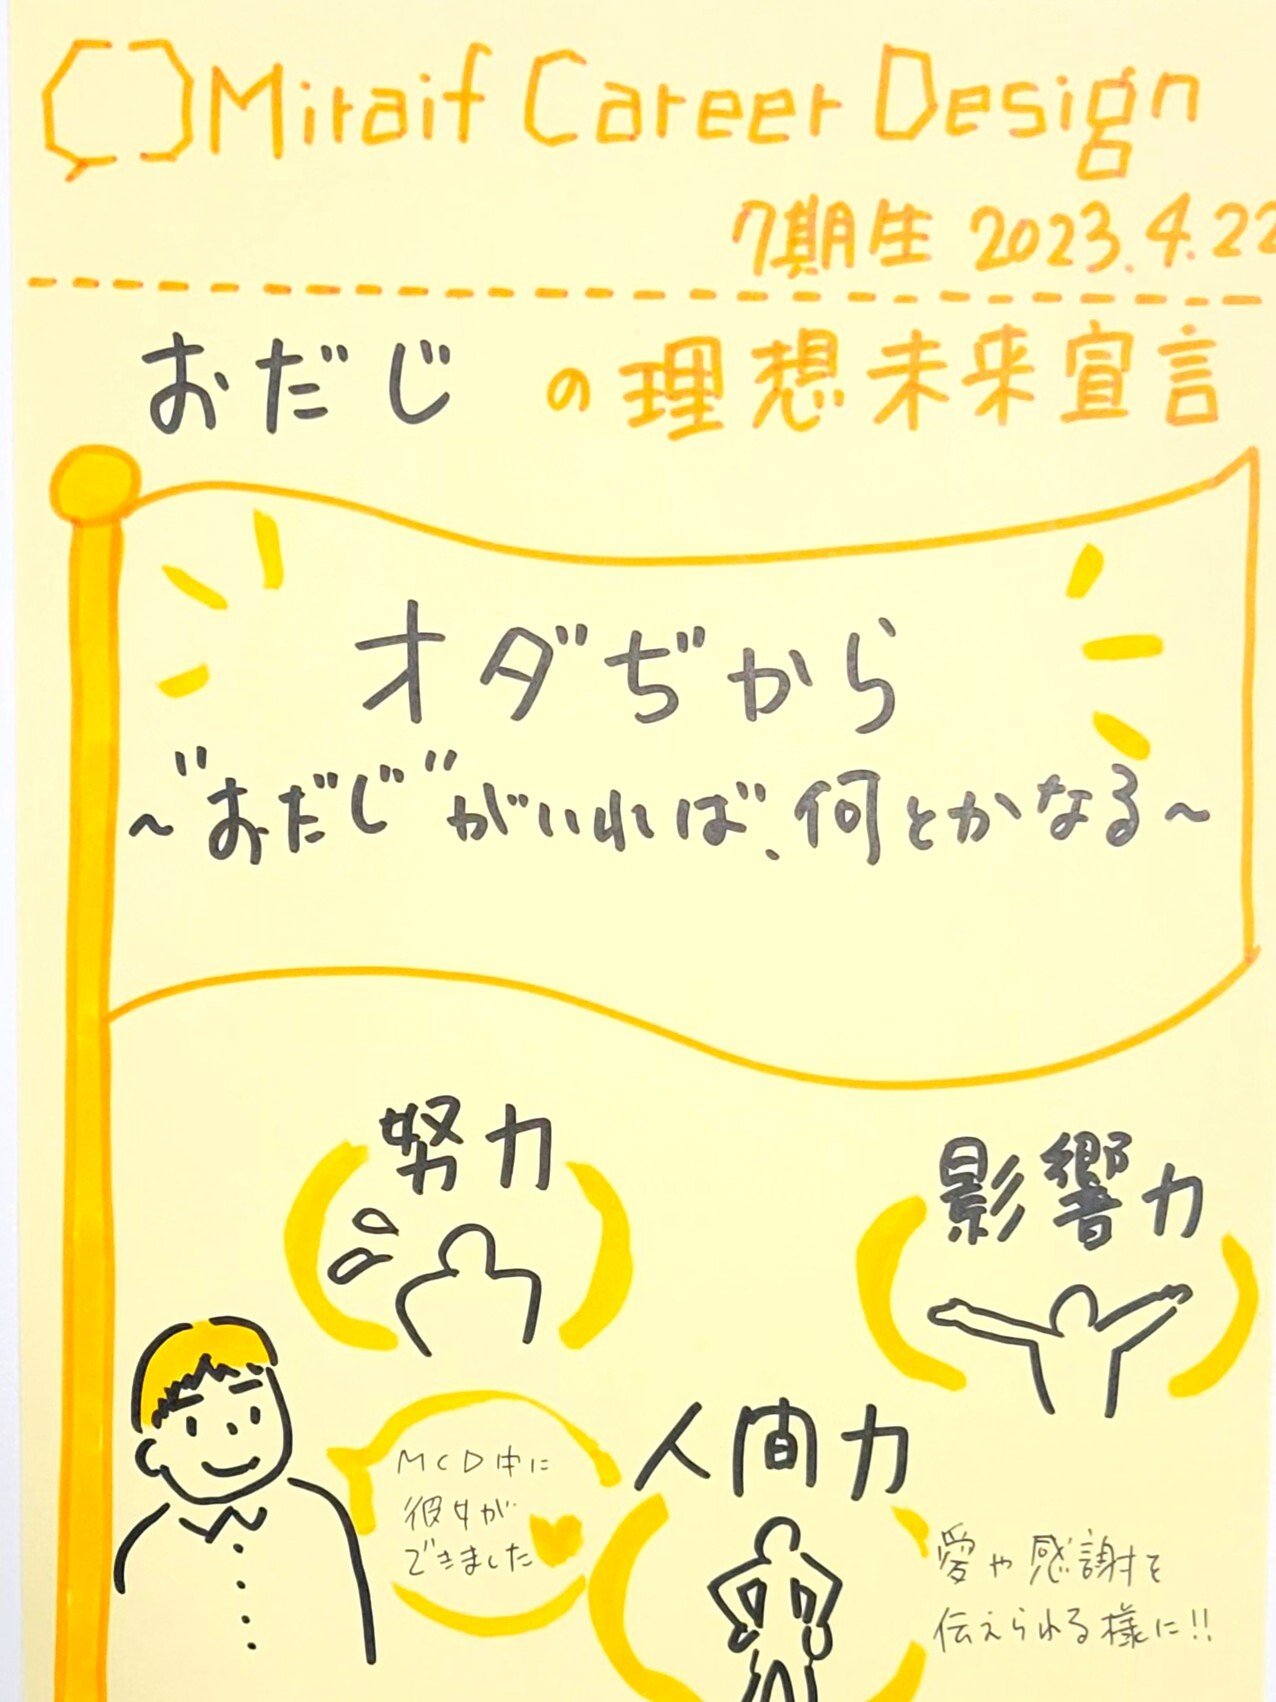 Miraif Career Design
7期生 2023.4.22
おだじ の理想未来宣言
オダぢから
~"おだじ"がいれば、何とかなる~
努力
影響力
人間力
MCD中に
彼女が
できました
愛や感謝を
伝えられる様に!!